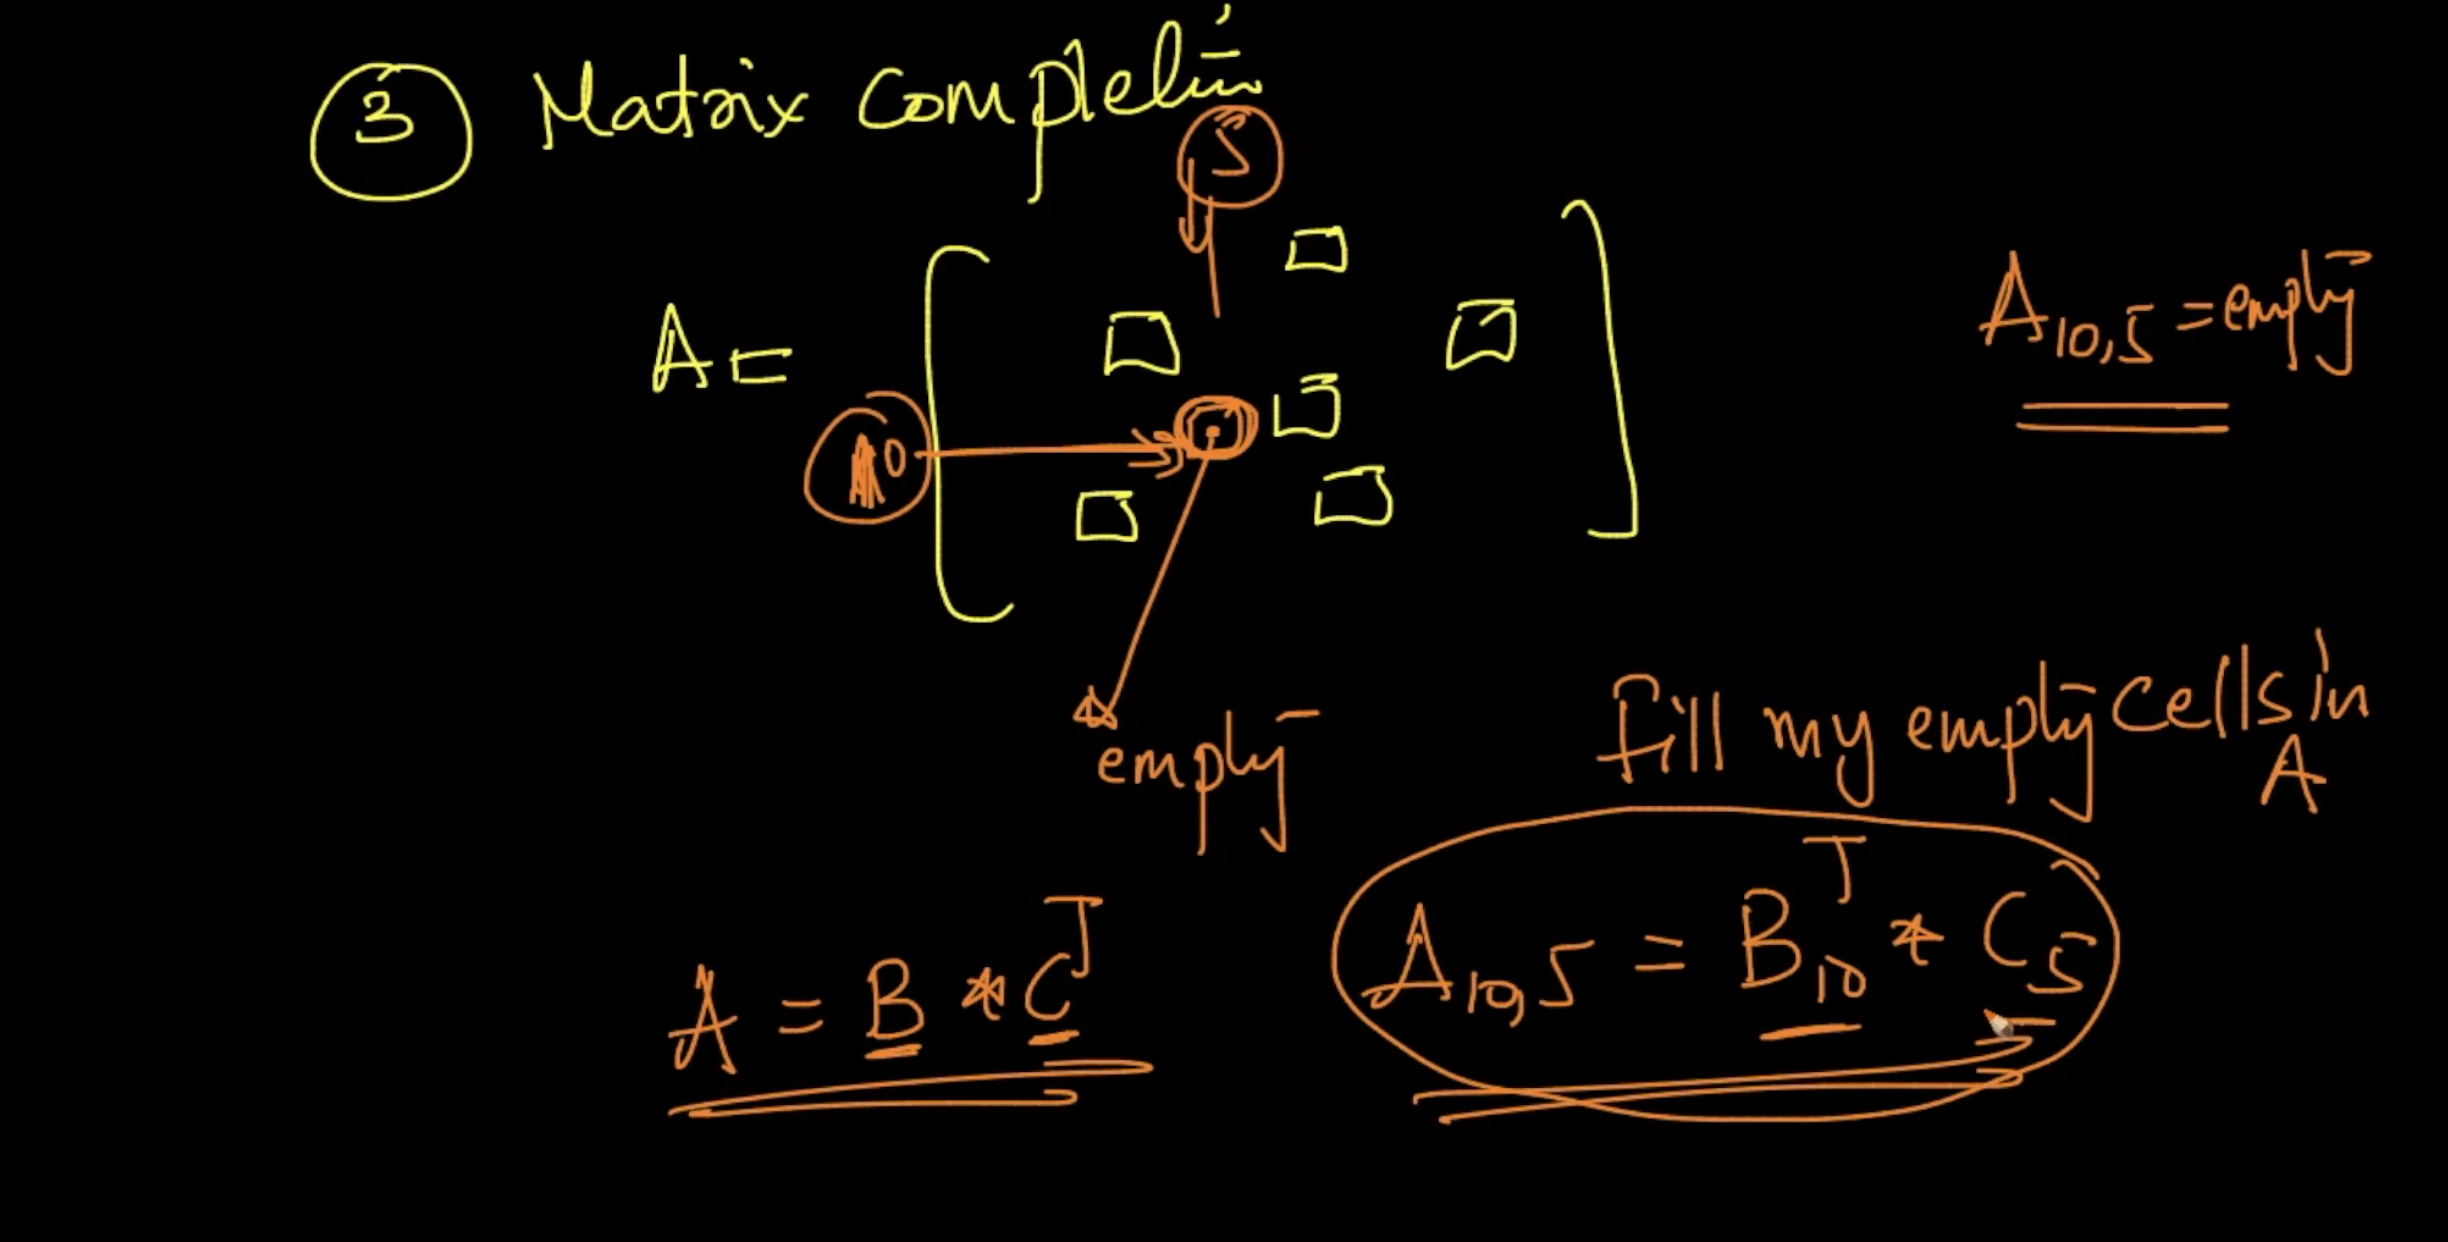 3 Matrix Completion
5
A =
10
A10,5 = empty
empty
fill my empty cells in
A
A = B * C^T
A10,5 = B10^T * C5